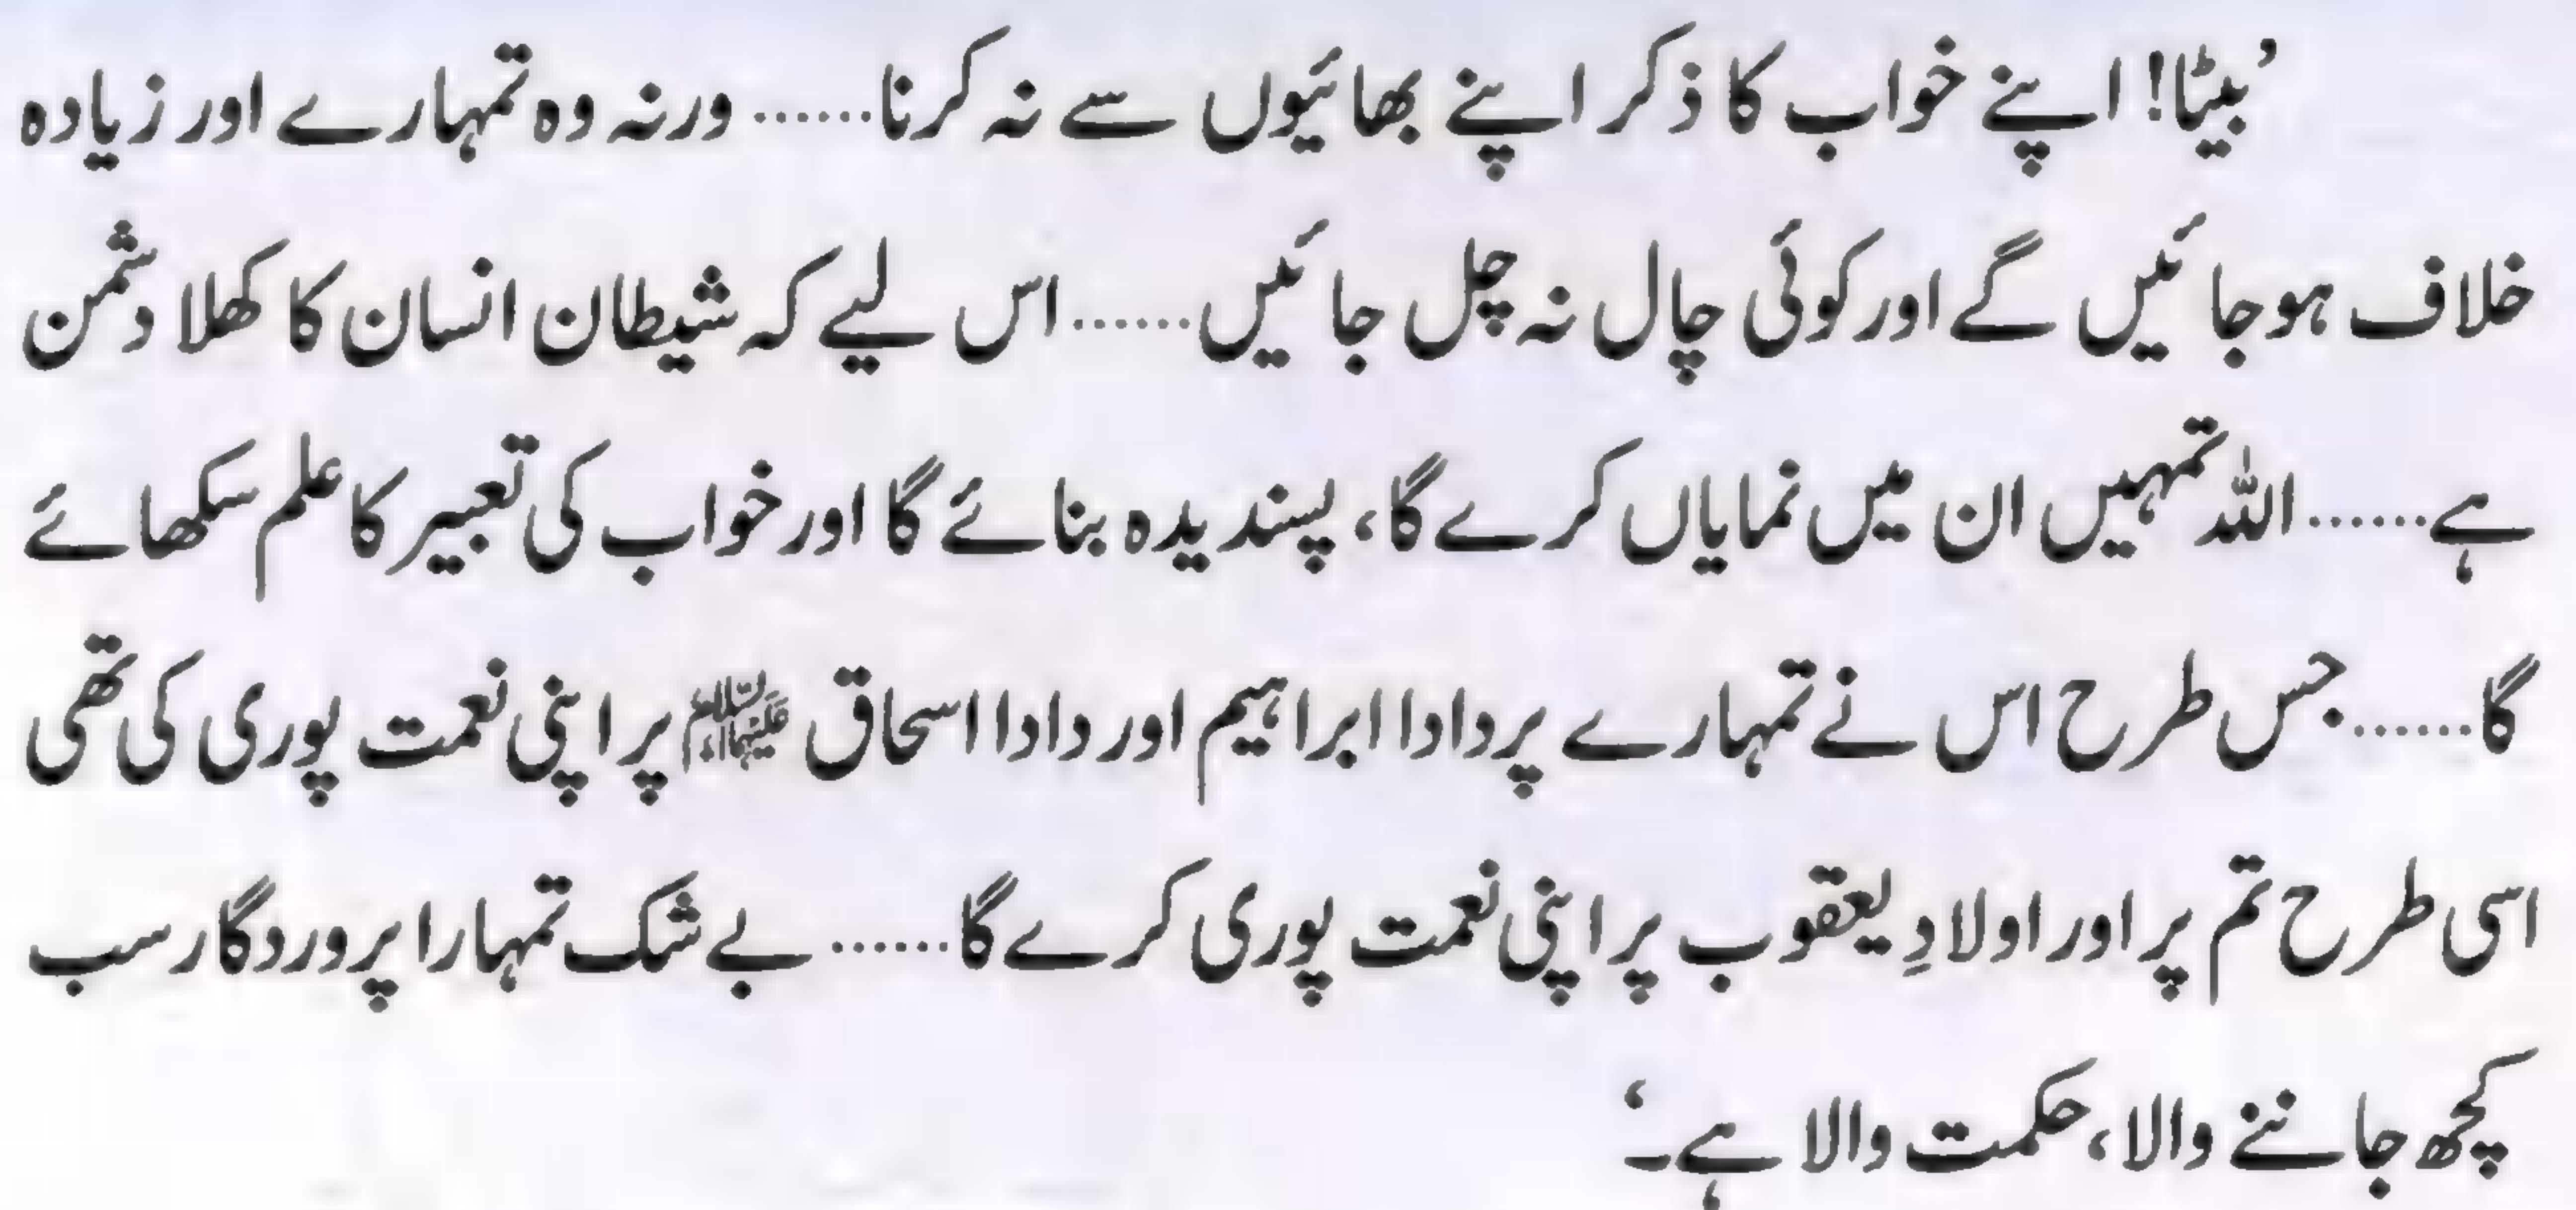 ’بیٹا! اپنے خواب کا ذکر اپنے بھائیوں سے نہ کرنا...... ورنہ وہ تمہارے اور زیادہ
خلاف ہوجائیں گے اور کوئی چال نہ چل جائیں...... اس لیے کہ شیطان انسان کا کھلا دشمن
ہے...... اللہ تمہیں ان میں نمایاں کرے گا، پسندیدہ بنائے گا اور خواب کی تعبیر کا علم سکھائے
گا...... جس طرح اس نے تمہارے پردادا ابراہیم اور دادا اسحاق علیہما السلام پر اپنی نعمت پوری کی تھی
اسی طرح تم پر اور اولادِ یعقوب پر اپنی نعمت پوری کرے گا...... بے شک تمہارا پروردگار سب
کچھ جاننے والا، حکمت والا ہے۔‘